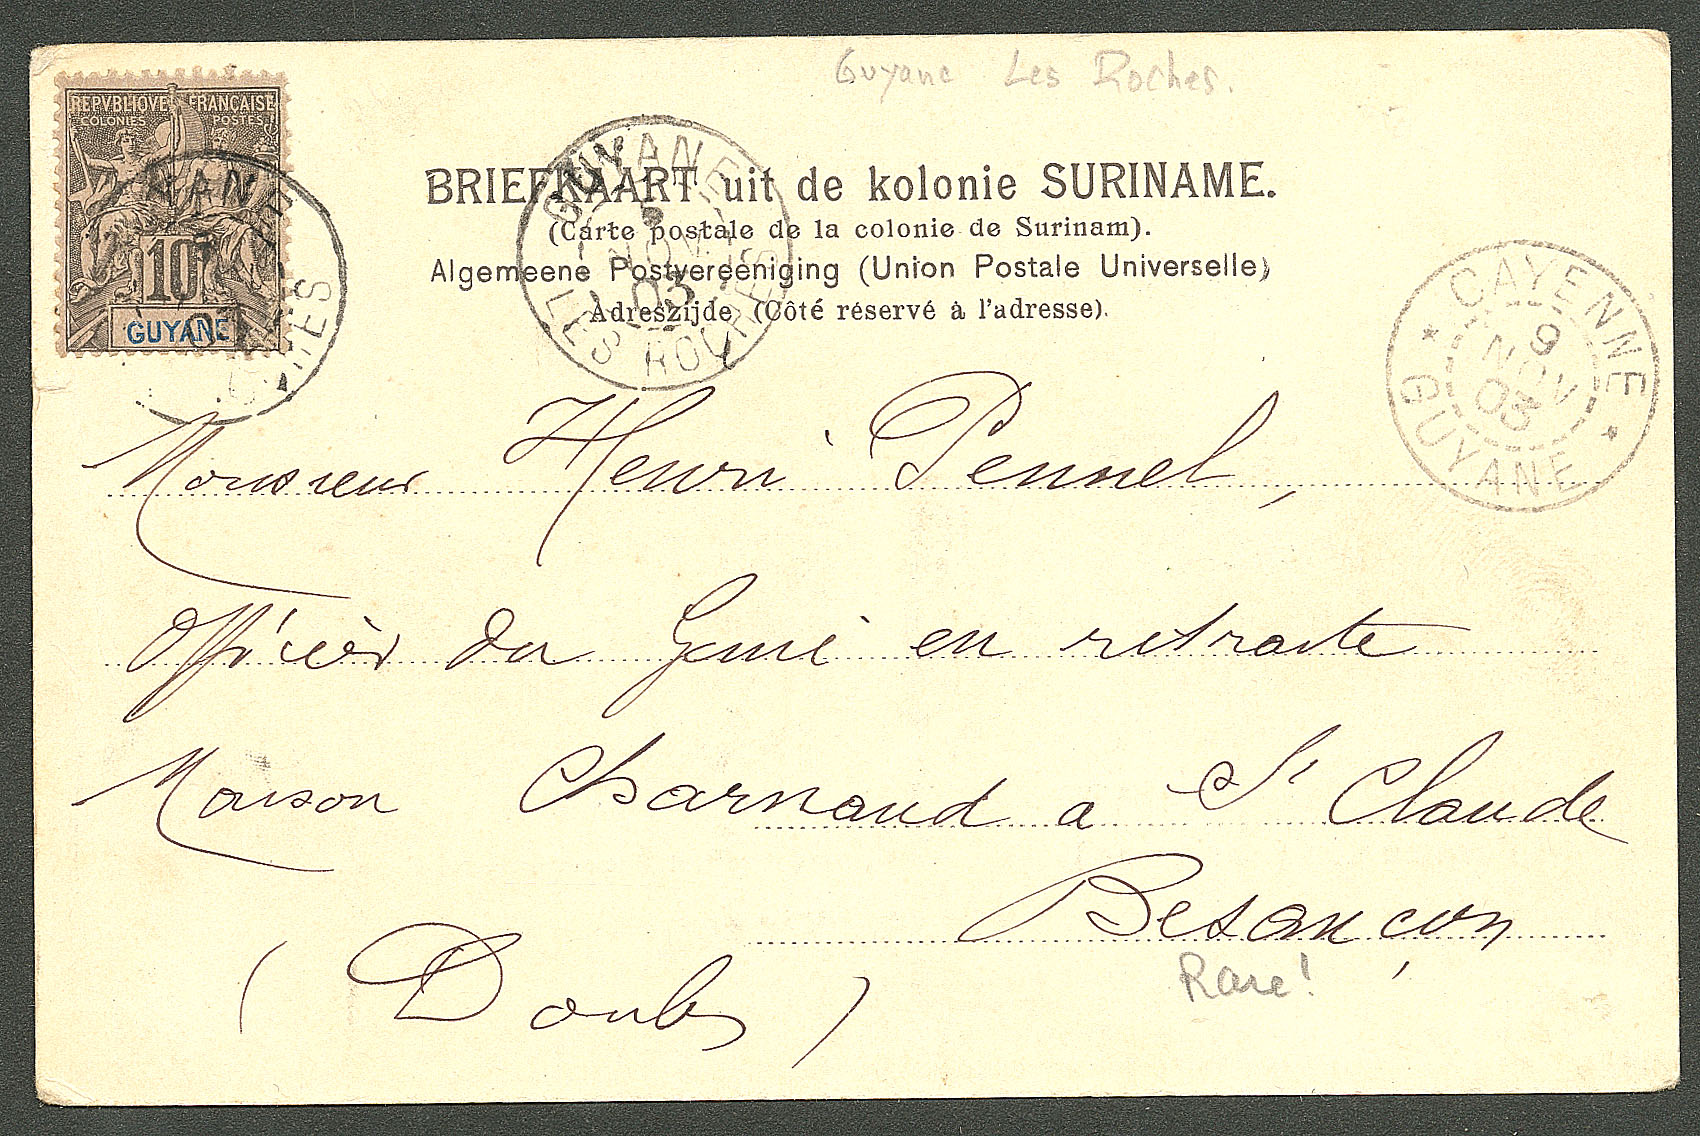 Guyane Les Roches.
REPVBLIQVE FRANÇAISE
COLONIES POSTES
10
GUYANE
GUYANE
5
NOV
03
LES ROCHES
BRIEFKAART uit de kolonie SURINAME.
(Carte postale de la colonie de Surinam).
Algemeene Postvereeniging (Union Postale Universelle)
Adreszijde (Côté réservé à l'adresse).
CAYENNE
9
NOV
03
* GUYANE *
Monsieur Henri Pennel,
Officier du Génie en retraite
Maison Charnaud a St Claude
Besançon
Rare!
(Doubs)